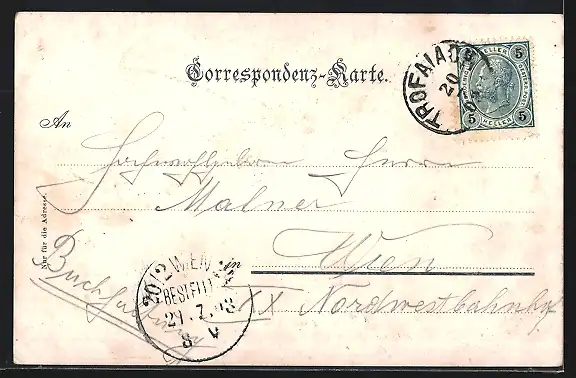 Correspondenz-Karte.
TROFAIACH
20
5 HELLER 5
5 HELLER 5
An
Hochwohlgeboren Herrn
Malner
Nur für die Adresse.
in Wien
Buchhaltung
20/2 WIEN
BESTELLT
21.7.03
8 V
XX Nordwestbahnhof